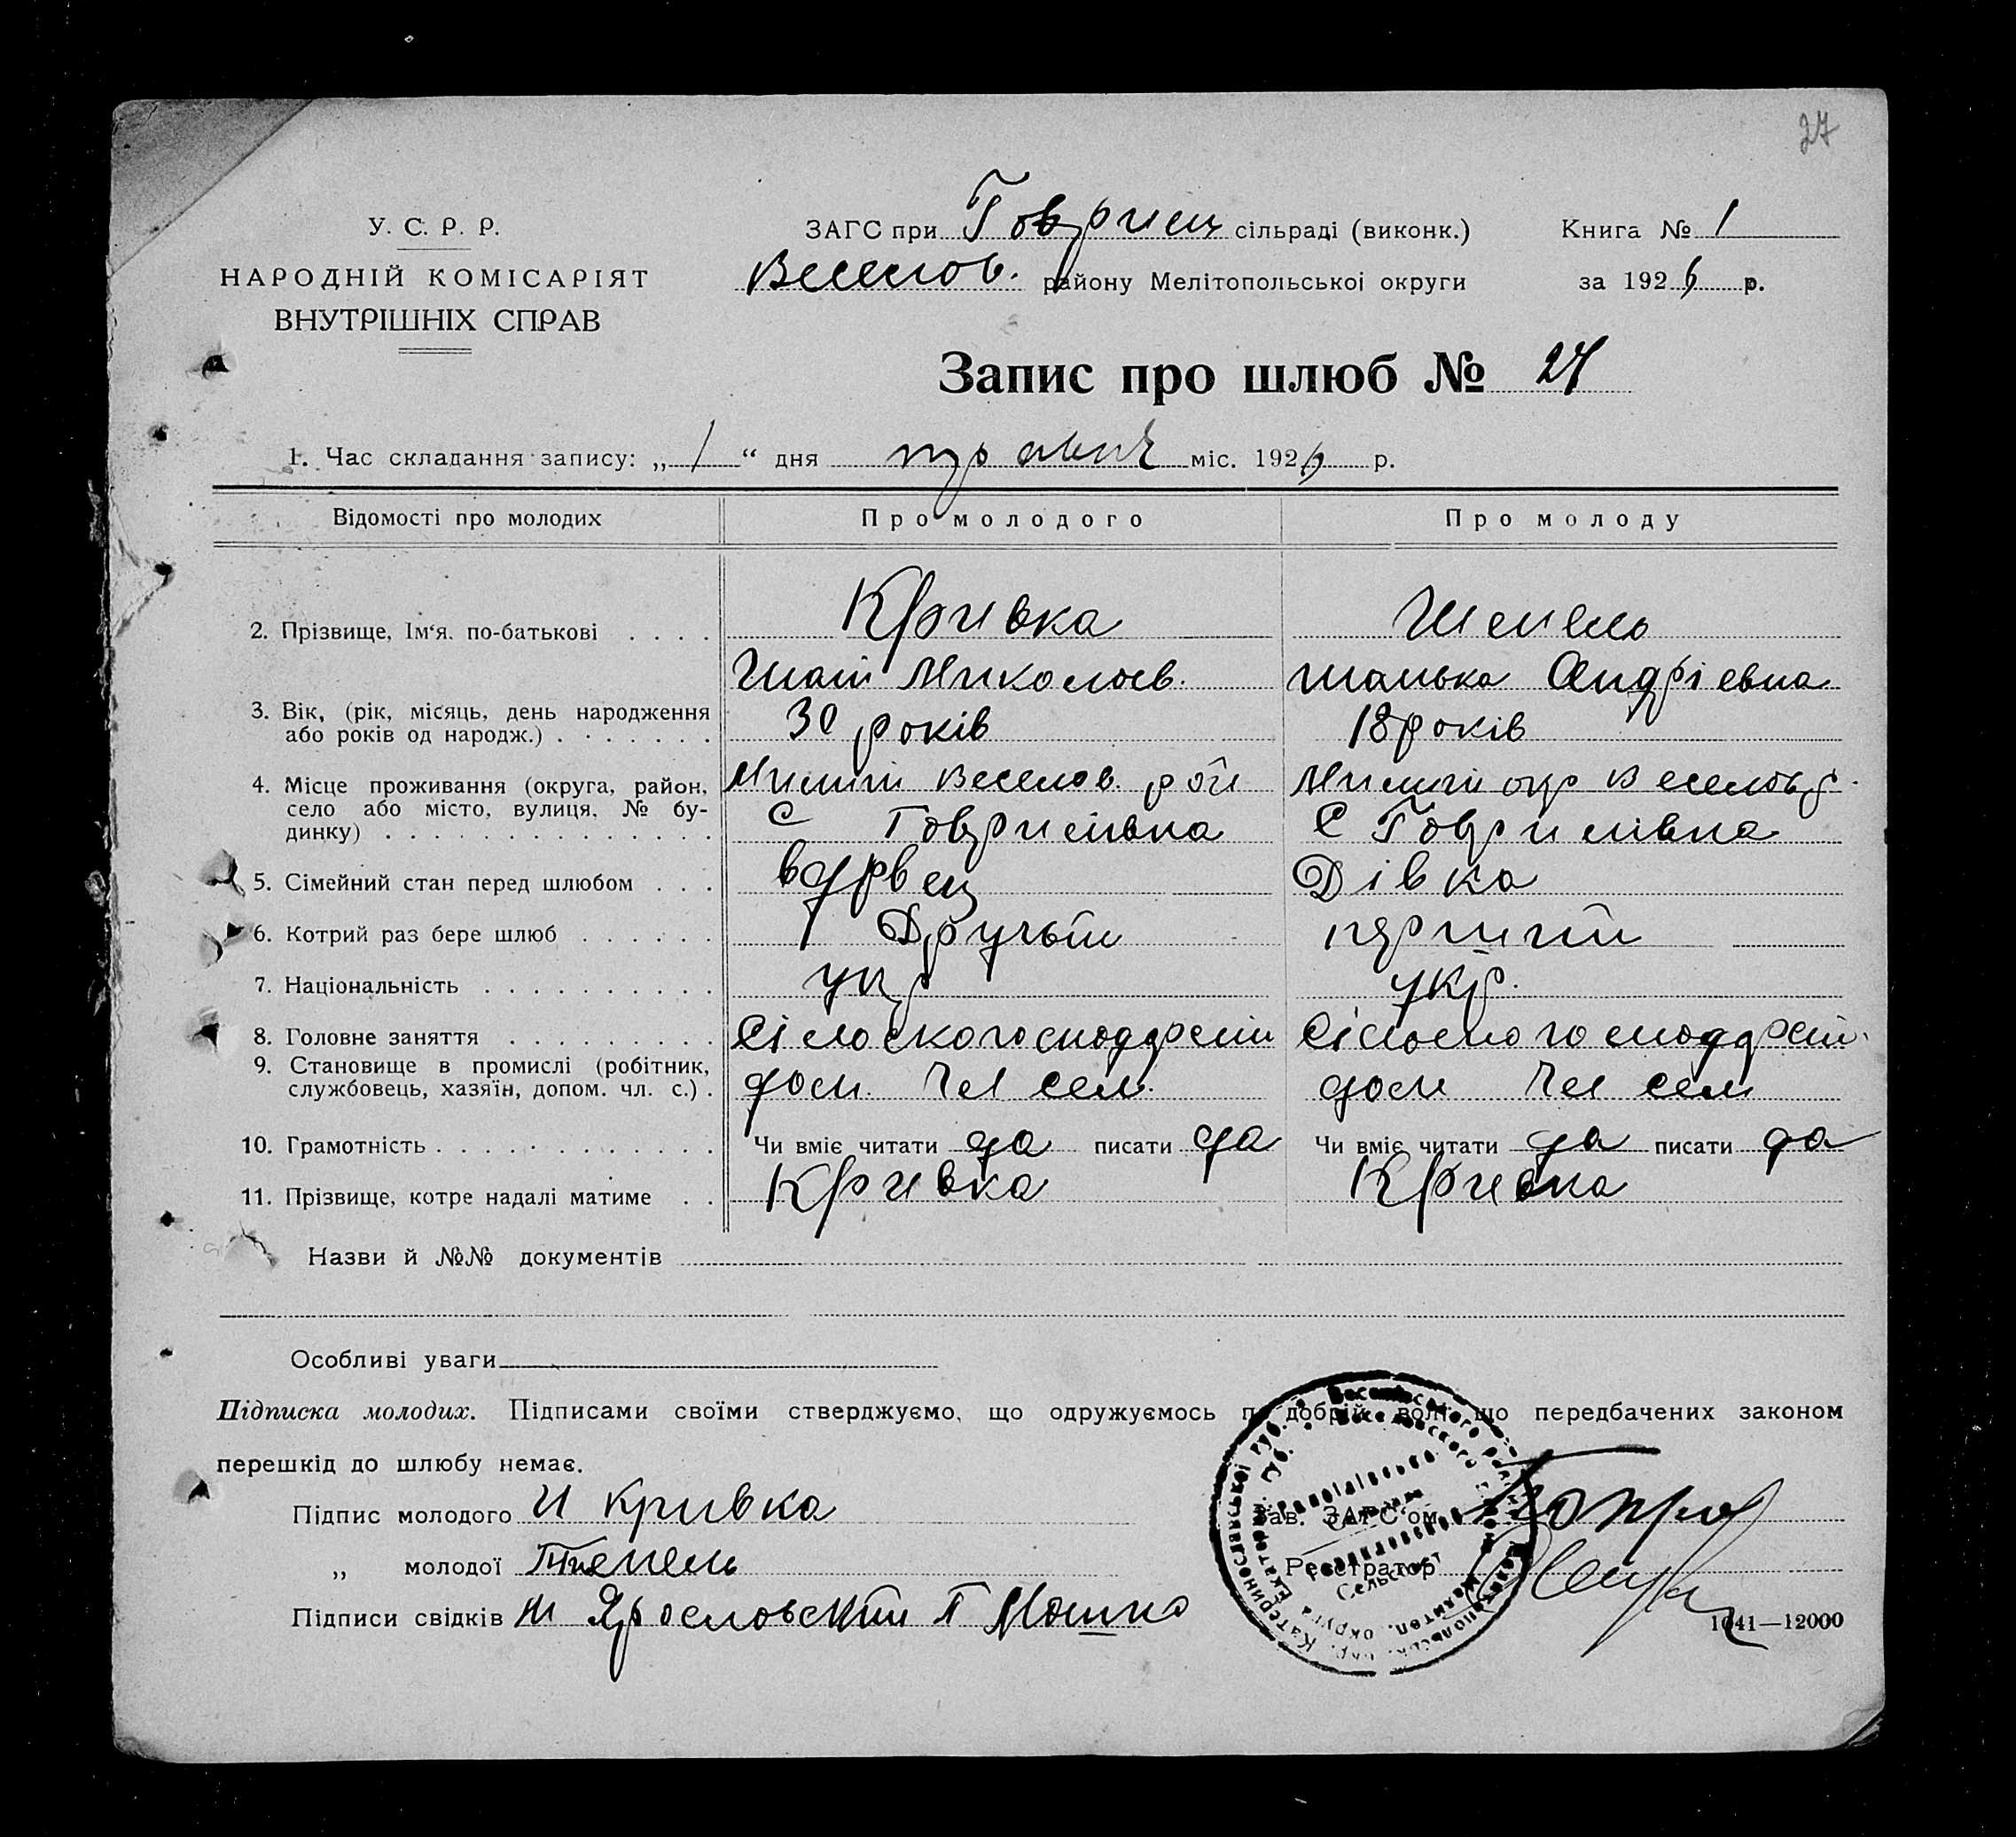 27
У. С. Р. Р.
НАРОДНІЙ КОМІСАРІЯТ
ВНУТРІШНІХ СПРАВ
ЗАГС при Говрил сільраді (виконк.)
Веселов. району Мелітопольськоі округи
Книга № 1
за 1926 р.
Запис про шлюб № 27
1. Час складання запису: „ 1 “ дня міс. 1926 р.
Відомості про молодих Про молодого Про молоду
2. Прізвище, Ім‘я. по-батькові . . . . Кривка Шепель
Миколаєв. Андрієвна
3. Вік, (рік, місяць, день народження
або років од народж.) . . . . . . . 30 років 18 років
4. Місце проживання (округа, район, Милит Веселов. рай Милит окр Веселов р.
село або місто, вулиця, № бу- с Говрилівка с Говрилівка
динку) . . . . . . . . . . . . . . .
5. Сімейний стан перед шлюбом . . . Дівка
6. Котрий раз бере шлюб . . . . . . Другый перший
7. Національність . . . . . . . . . . укр укр.
8. Головне заняття . . . . . . . . .
9. Становище в промислі (робітник,
службовець, хазяїн, допом. чл. с.) . дом. чел сем. дом чел сем
10. Грамотність . . . . . . . . . . . . Чи вміє читати да писати да Чи вміє читати да писати да
11. Прізвище, котре надалі матиме . . Кривка Кривка
Назви й №№ документів
Особливі уваги
Підписка молодих. Підписами своїми стверджуємо, що одружуємось по добрій волі що передбачених законом
перешкід до шлюбу немає.
Підпис молодого И Кривка
„ молодої Шепель
Підписи свідків Ярословский Г Мошко
Зав. ЗАГС‘ом
Реєстратор
1041—12000